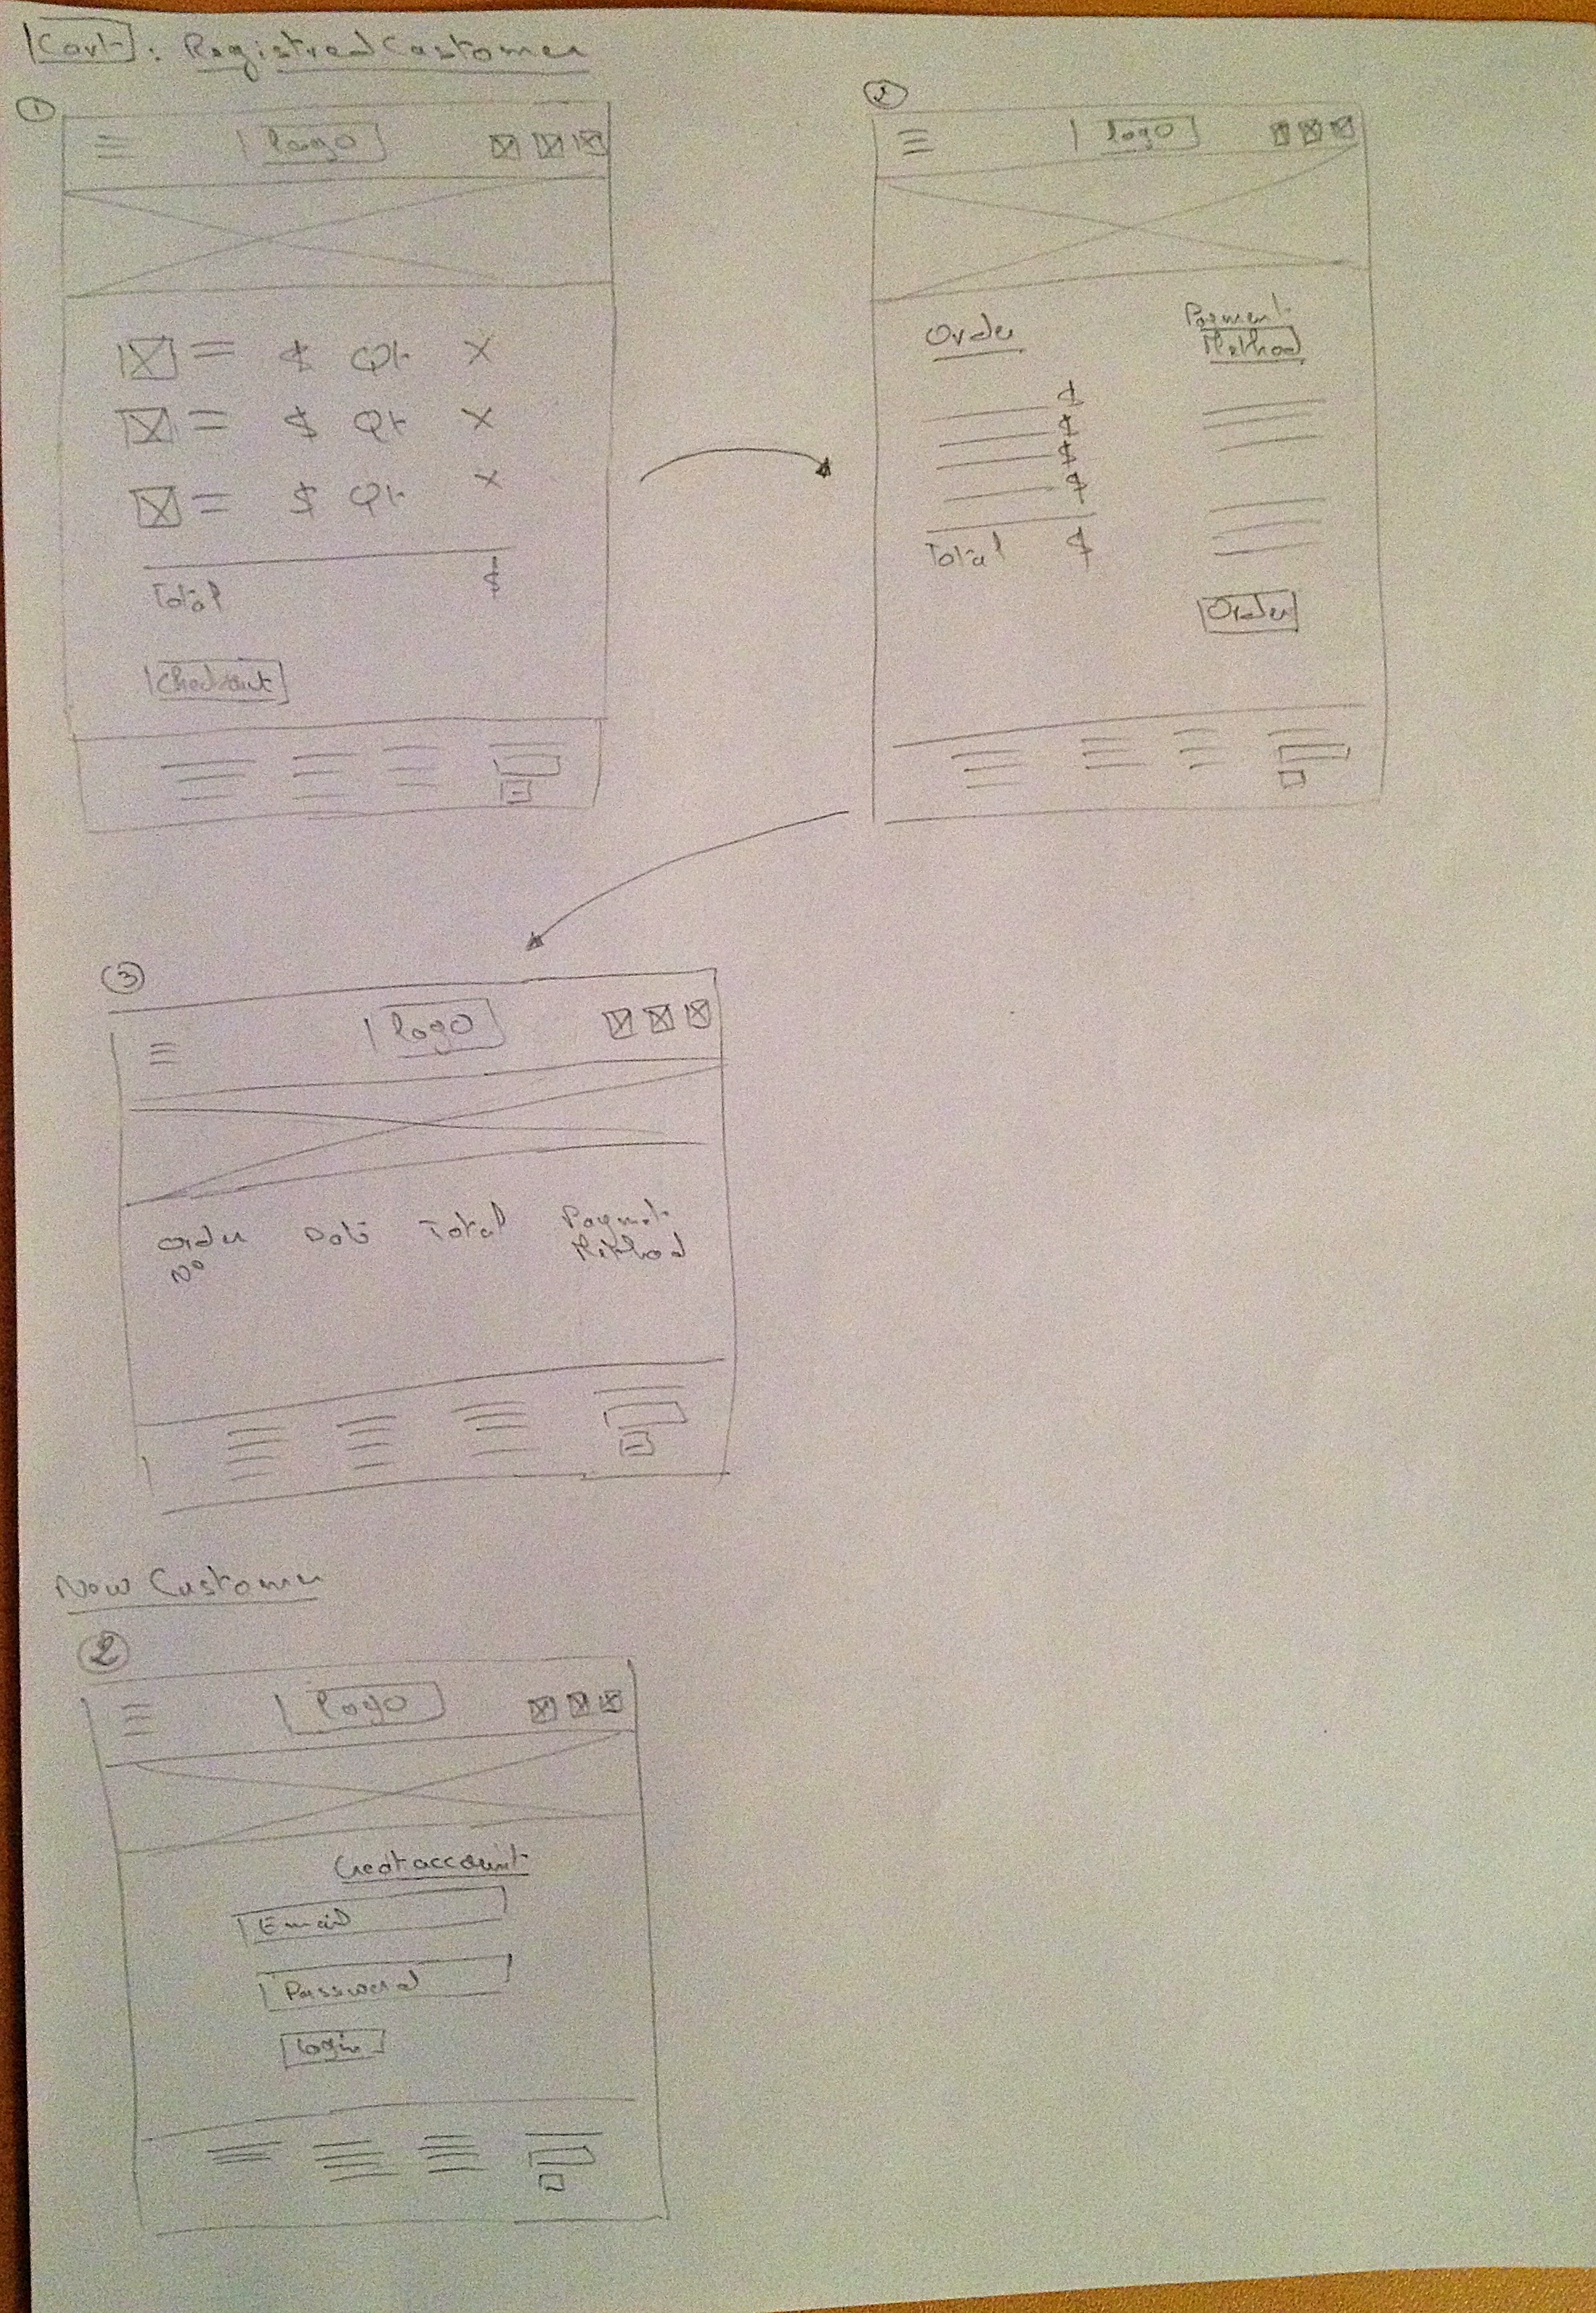 Cart : Registred Customer
1
logo
$ Qt X
$ Qt X
$ Qt X
Total $
Checkout
2
logo
Order
Payment
Method
$
$
$
$
Total $
Order
3
logo
Order
N°
Date
Total
Payment
Method
New Customer
2
logo
Creat account
Email
Password
Login